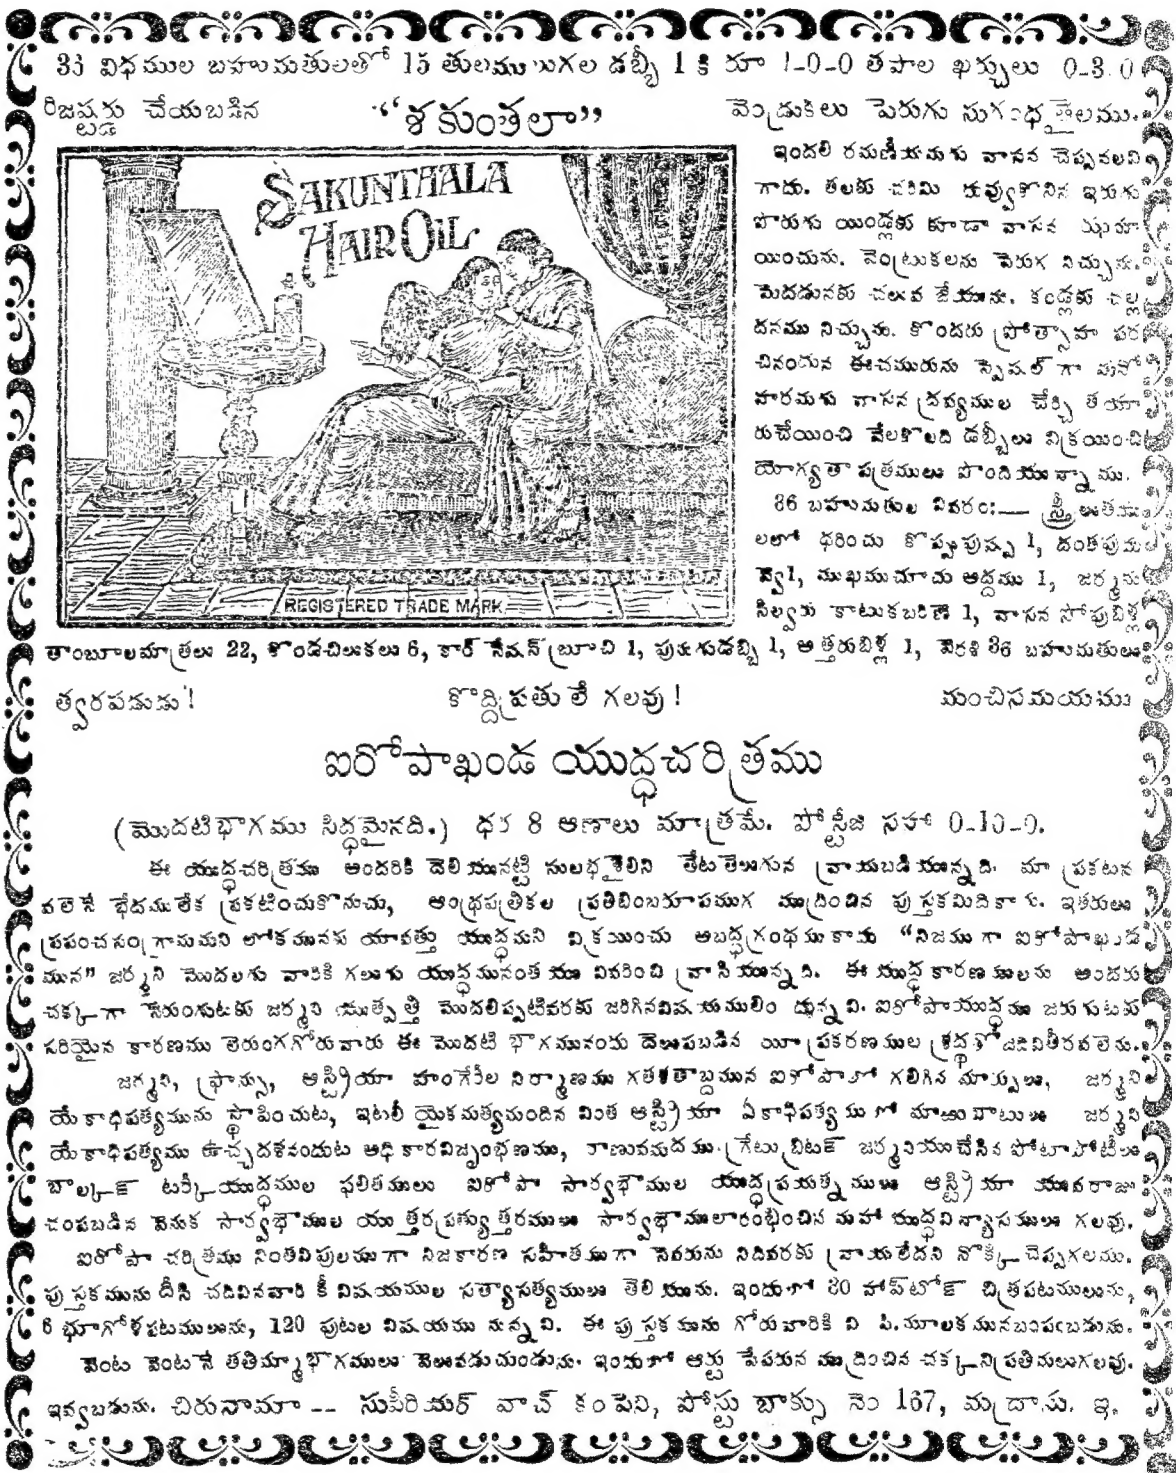 36 విధముల బహుమతులతో 15 తులములుగల డబ్బీ 1 కి రూ 1-0-0 తపాల ఖర్చులు 0-3-0
రిజష్టర్డు చేయబడిన "శకుంతలా" వెండ్రుకలు పెరుగు సుగంధ తైలము.
SAKUNTHALA
HAIR OIL
REGISTERED TRADE MARK
ఇందలి రమణీయమగు వాసన చెప్పనలవి
గాదు. తలకు చరిమి దువ్వుకొనిన ఇరుగు
పొరుగు యిండ్లకు కూడా వాసన ఝుమా
యించును. వెంట్రుకలను పెరుగ నిచ్చును.
మెదడునకు చలువ జేయును. కండ్లకు చల్ల
దనము నిచ్చును. కొందరు ప్రోత్సాహ పర
చినందున ఈచమురును స్పెషల్ గా మనో
హరమగు వాసన ద్రవ్యముల చేర్చి తయా
రుచేయించి వేలకొలది డబ్బీలు విక్రయించి
యోగ్యతా పత్రములు పొందియున్నాము.
36 బహుమతుల వివరం:— స్త్రీ లుతమ
లలో ధరించు కొప్పుపువ్వు 1, దంతపుదు
వ్వె1, ముఖముచూచు అద్దము 1, జర్మను
సిల్వరు కాటుకబరిణె 1, వాసన సోపుబిళ్ల
తాంబూలమాత్రలు 22, కొండచిలుకలు 6, కార్ నేషన్ బ్రూచి 1, పునుగుడబ్బి 1, అత్తరుబిళ్ల 1, వెరశి 36 బహుమతులు
త్వరపడుడు! కొద్దిప్రతులే గలవు! మంచిసమయము
ఐరోపాఖండ యుద్ధచరిత్రము
(మొదటిభాగము సిద్ధమైనది.) ధర 8 అణాలు మాత్రమే. పోస్టేజి సహా 0-10-0.
ఈ యుద్ధచరిత్రము అందరికి దెలియునట్టి సులభశైలిని తేటతెలుగున వ్రాయబడియున్నది. మా ప్రకటన
వలెనే భేదములేక ప్రకటించుకొనుచు, ఆంధ్రపత్రికల ప్రతిబింబరూపముగ ముద్రించిన పుస్తకమిదికాదు. ఇతరులు
ప్రపంచసంగ్రామమని లోకమునకు యావత్తు యుద్ధమని విక్రయించు అబద్ధగ్రంథముకాదు "నిజముగా ఐరోపాఖండ
మున" జర్మని మొదలగు వారికి గలుగు యుద్ధమునంతయు వివరించి వ్రాసియున్నది. ఈ యుద్ధ కారణములను అందరు
చక్కగా నెరుంగుటకు జర్మని యుత్పత్తి మొదలిప్పటివరకు జరిగినవిషయములిం దున్నవి. ఐరోపాయుద్ధము జరుగుటకు
సరియైన కారణము లెరుంగగోరువారు ఈ మొదటి భాగమునందు దెలుపబడిన యీ ప్రకరణముల శ్రద్ధతో చదివితీరవలెను.
జర్మని, ఫ్రాన్సు, ఆస్ట్రియా హంగేరీల నిర్మాణము గతశతాబ్దమున ఐరోపాలో గలిగిన మార్పులు, జర్మని
యేకాధిపత్యమును స్థాపించుట, ఇటలీ యైకమత్యమందిన వింత ఆస్ట్రియా ఏకాధిపత్యములో మాఱుపాటులు జర్మని
యేకాధిపత్యము ఉచ్చదశనందుట అధికారవిజృంభణము, రాణువమదము గ్రేటుబ్రిటన్ జర్మనియుచేసిన పోటాపోటీలు
బాల్కన్ టర్కీయుద్ధముల ఫలితములు ఐరోపా సార్వభౌముల యుద్ధప్రయత్నములు ఆస్ట్రియా యువరాజు
చంపబడిన వెనుక సార్వభౌముల యుత్తరప్రత్యుత్తరములు సార్వభౌములారంభించిన మహా యుద్ధవిన్యాసములు గలవు.
ఐరోపా చరిత్రము నింతవిపులముగా నిజకారణ సహితముగా నెవరును నిదివరకు వ్రాయలేదని నొక్కి చెప్పగలము.
పుస్తకమును దీసి చదివినవారి కీ విషయముల సత్యాసత్యములు తెలియును. ఇందులో 30 హాప్‌టోన్ చిత్రపటములును,
6 భూగోళపటములును, 120 పుటల విషయము నున్నవి. ఈ పుస్తకమును గోరువారికి వి పి.మూలకమునబంపబడును.
వెంట వెంటనే తతిమ్మాభాగములు వెలువడుచుండును. ఇందులో ఆర్టు పేపరున ముద్రించిన చక్కని ప్రతిమలుగలవు.
ఇవ్వబడును. చిరునామా -- సుపీరియర్ వాచ్ కంపెని, పోస్టు బాక్సు నెం 167, మద్రాసు. ఇ.